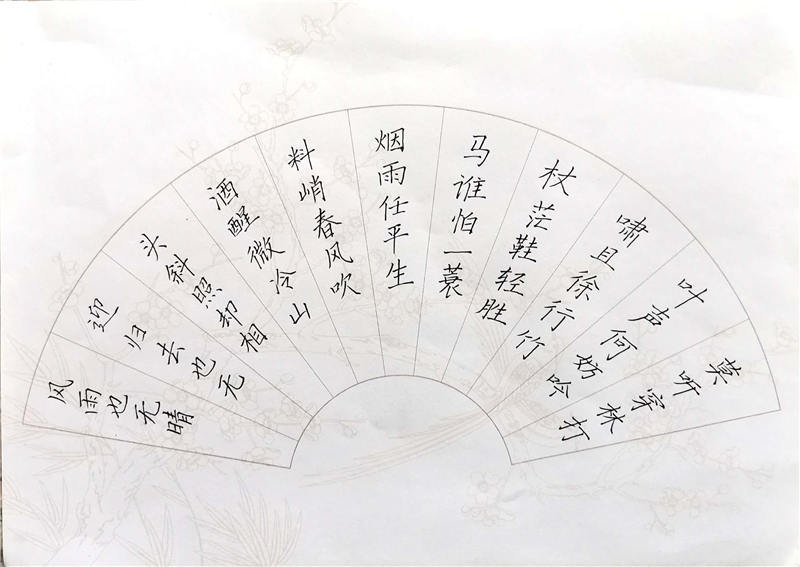 莫听穿林打
叶声何妨吟
啸且徐行竹
杖茫鞋轻胜
马谁怕一蓑
烟雨任平生
料峭春风吹
酒醒微冷山
头斜照却相
迎归去也无
风雨也无晴